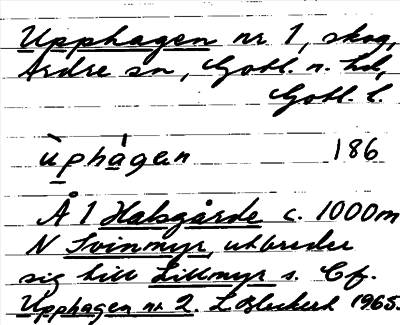 Upphagen nr 1, skog,
Ardre sn, Gotl. n. hd,
Gotl. l.
ùphágen 186
Å 1 Halsgårde c. 1000m
N Svinmyr, utbreder
sig till Lillmyr s. Cf.
Upphagen nr 2. L Bleckert 1965.